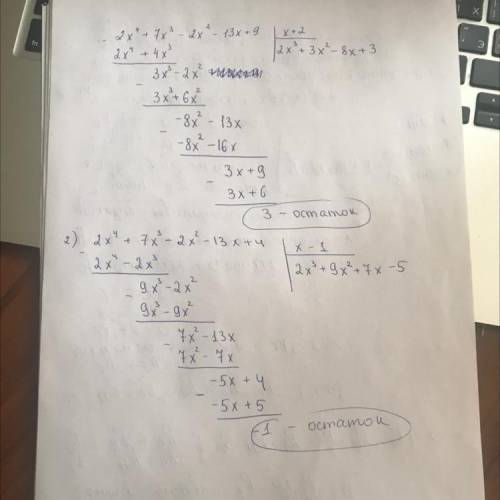 2x⁴ + 7x³ - 2x² - 13x + 9 | x+2
2x⁴ + 4x³ | 2x³ + 3x² - 8x + 3
- 3x³ - 2x²
3x³ + 6x²
- -8x² - 13x
-8x² - 16x
- 3x + 9
3x + 6
3 - остаток
2) 2x⁴ + 7x³ - 2x² - 13x + 4 | x - 1
- 2x⁴ - 2x³ | 2x³ + 9x² + 7x - 5
- 9x³ - 2x²
9x³ - 9x²
- 7x² - 13x
7x² - 7x
- -5x + 4
-5x + 5
-1 - остаток